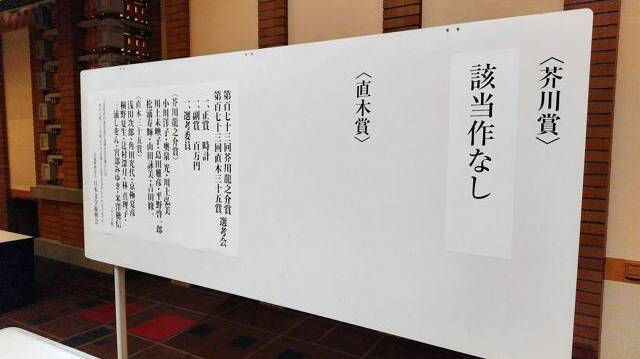 〈芥川賞〉
該当作なし
〈直木賞〉
第百七十三回芥川龍之介賞
第百七十三回直木三十五賞 選考会
一、正賞 時計
一、副賞 百万円
一、選考委員
〈芥川龍之介賞〉
小川洋子・奥泉 光・川上弘美
川上未映子・島田雅彦・平野啓一郎
松浦寿輝・山田詠美・吉田修一
〈直木三十五賞〉
浅田次郎・角田光代・京極夏彦
桐野夏生・辻村深月・林 真理子・
三浦しをん・宮部みゆき・米澤穂信
日本文学振興会